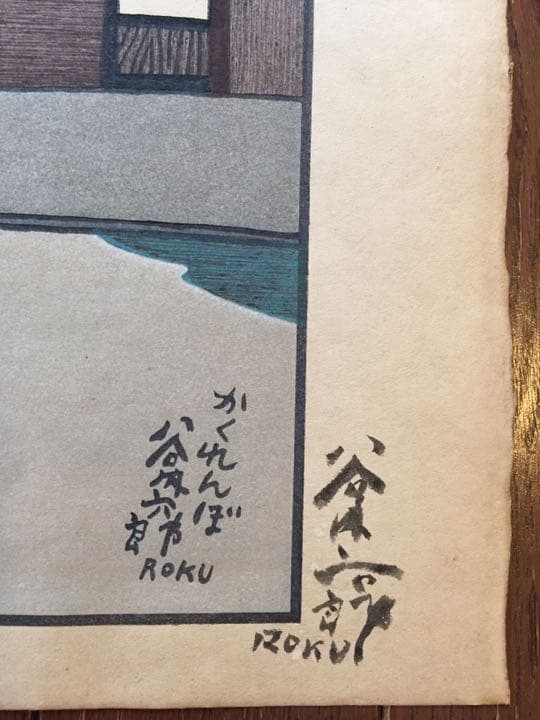 かくれんぼ
谷内六郎
ROKU
谷内六郎
ROKU